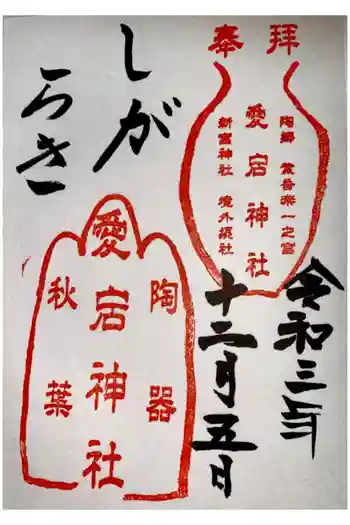 奉拝
陶郷 紫香楽一之宮
愛宕神社
新宮神社 境外末社
令和三年
十二月五日
しが
らき
陶器
愛宕神社
秋葉